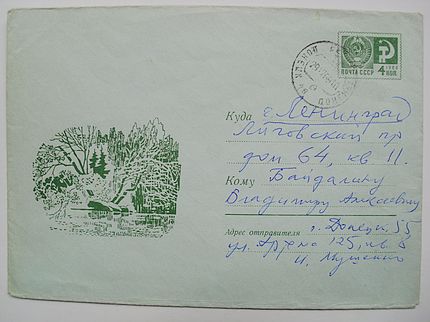 ПОЧТА СССР
4
КОП
Куда г. Ленинград
Лиговский пр
дом 64, кв 11.
Кому Байдалину
Владимиру Алексеевичу
г. Донецк, 55
Адрес отправителя
ул. Артема 125, кв. 3